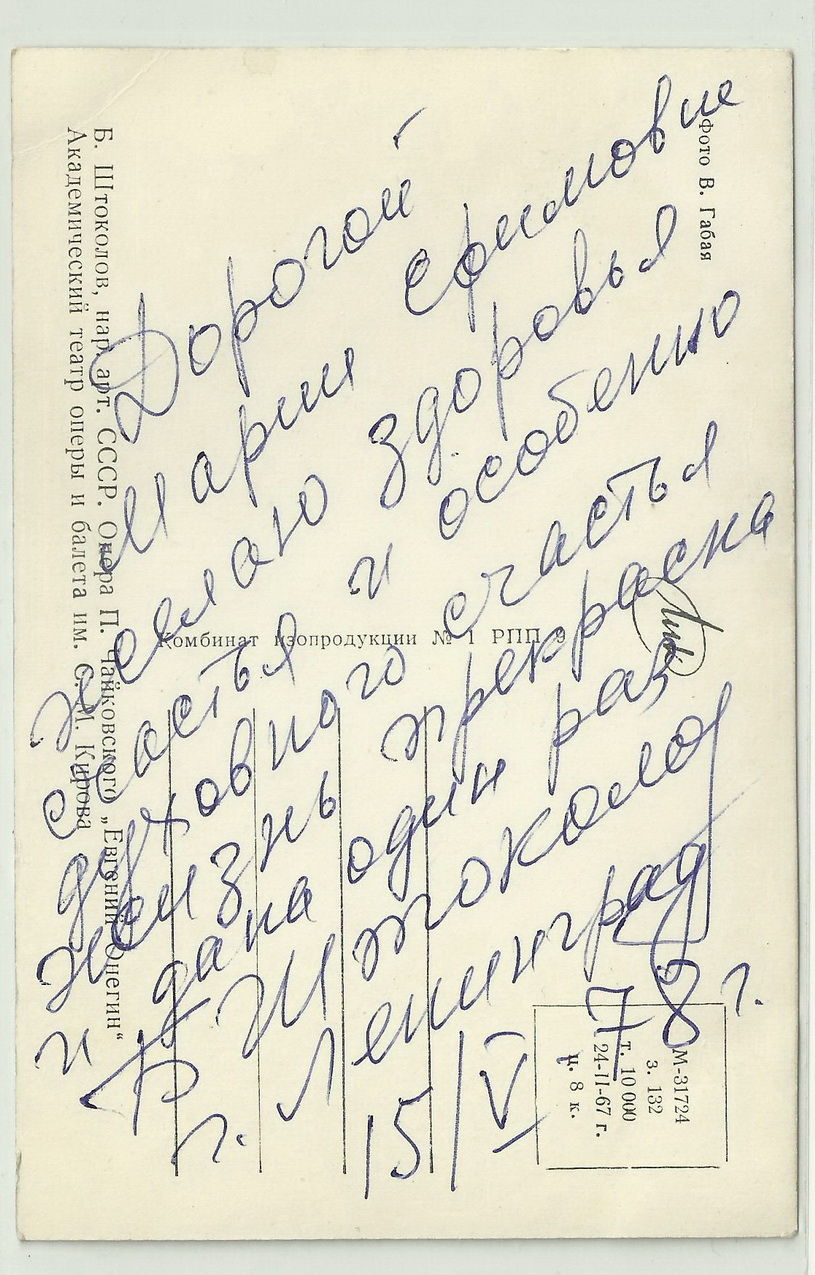 Дорогой
Марии Ефимовне
желаю здоровья
счастья и особенно
духовного счастья
жизнь прекрасна
и дана один раз
Б Штоколов
г. Ленинград
15/V 78 г.
Б. Штоколов, нар. арт. СССР. Опера П. Чайковского „Евгений Онегин“
Академический театр оперы и балета им. С. М. Кирова
Фото В. Габая
Комбинат изопродукции № 1 РПП 9
М-31724
з. 132
т. 10 000
24-II-67 г.
ц. 8 к.